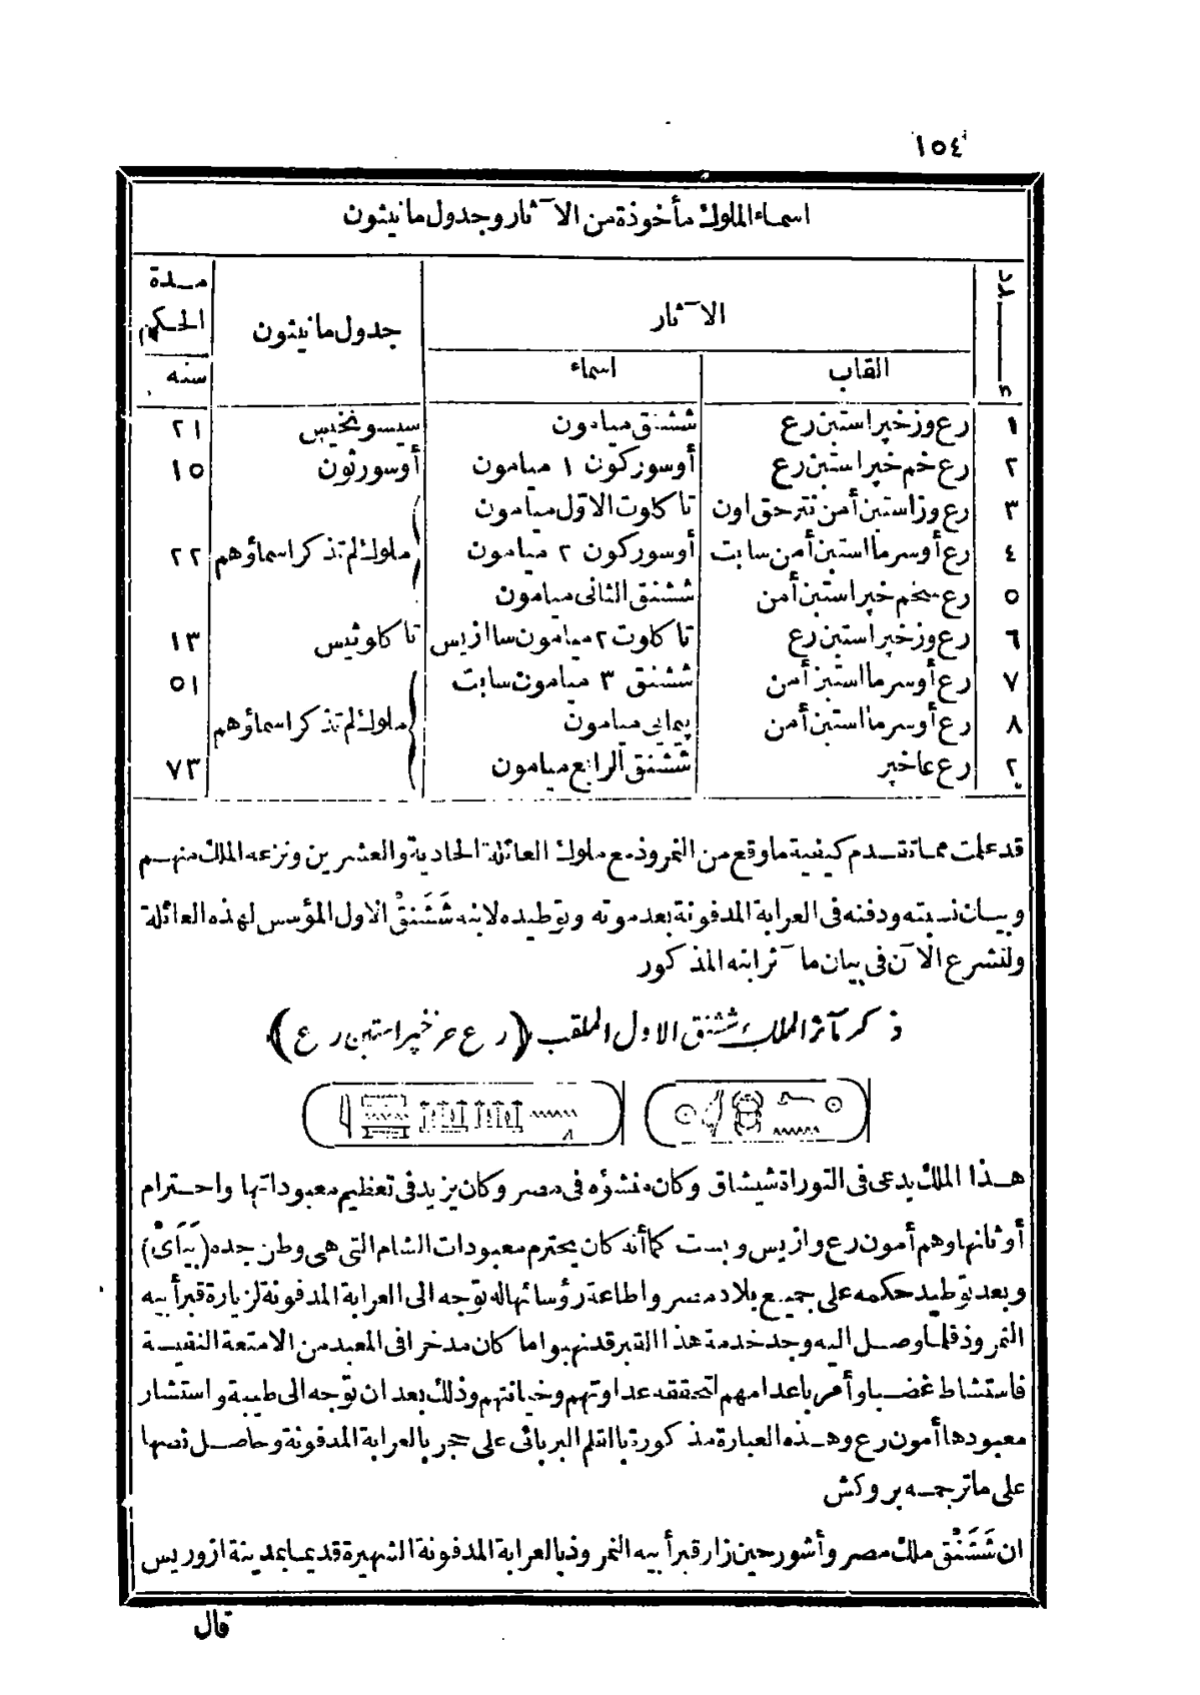 ١٥٤
اسماء الملوك مأخوذة من الآثار وجدول مانيثون
عدد
الآثار
جدول مانيثون
مدة
الحكم
القاب
اسماء
سنه
١ رع وزخپر استبن رع ششنق ميامون سيسونخيس ٢١
٢ رع خم خپر استبن رع أوسوركون ١ ميامون أوسورثون ١٥
٣ رع وزاستبن أمن نترحق اون تاكلوت الاول ميامون
٤ رع أوسرما استبن أمن سابت أوسوركون ٢ ميامون ملوك لم تذكر اسماؤهم ٢٢
٥ رع سخم خپر استبن أمن ششنق الثانى ميامون
٦ رع وزخپر استبن رع تاكلوت ٢ ميامون سا ازيس تاكلوثيس ١٣
٧ رع أوسرما استبن أمن ششنق ٣ ميامون سابت ٥١
٨ رع أوسرما استبن أمن پمائى ميامون ملوك لم تذكر اسماؤهم
٢ رع عاخپر شَشَنق الرابع ميامون ٧٣
قد علمت مما تقدم كيفية ماوقع من النمروذ مع ملوك العائلة الحادية والعشرين ونزعه الملك منهم
وبيان نسبته ودفنه فى العرابة المدفونة بعد موته وتوطيده لابنه شَشَنقْ الاول المؤسس لهذه العائلة
ولنشرع الآن فى بيان مآثر ابنه المذكور
ذكر مآثر الملك ششنق الاول الملقب (رع عزخپر استبن رع)
هذا الملك يدعى فى التوراة شيشاق وكان منشؤه فى مصر وكان يزيد فى تعظيم معبوداتها واحترام
أوثانها وهم أمون رع وازيس وبست كما أنه كان يحترم معبودات الشام التى هى وطن جده (بَيَاىْ)
وبعد توطيد حكمه على جميع بلاد مصر واطاعة رؤسائها له توجه الى العرابة المدفونة لزيارة قبر أبيه
النمروذ فلما وصل اليه وجد خدمة هذا القبر قد نهبوا ما كان مدخرا فى المعبد من الامتعة النفيسة
فاستشاط غضبا وأمر باعدامهم لتحققه عداوتهم وخيانتهم وذلك بعد ان توجه الى طيبة واستشار
معبودها أمون رع وهذه العبارة مذكورة بالقلم البربائى على حجر بالعرابة المدفونة وحاصل نصها
على ماترجمه بروكش
ان شَشَنْق ملك مصر وأشور حين زار قبر أبيه النمروذ بالعرابة المدفونة الشهيرة قديما بمدينة ازوريس
قال